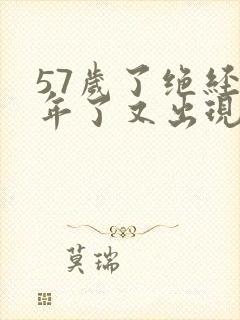 57歲了绝经
年了又出現
莫瑞